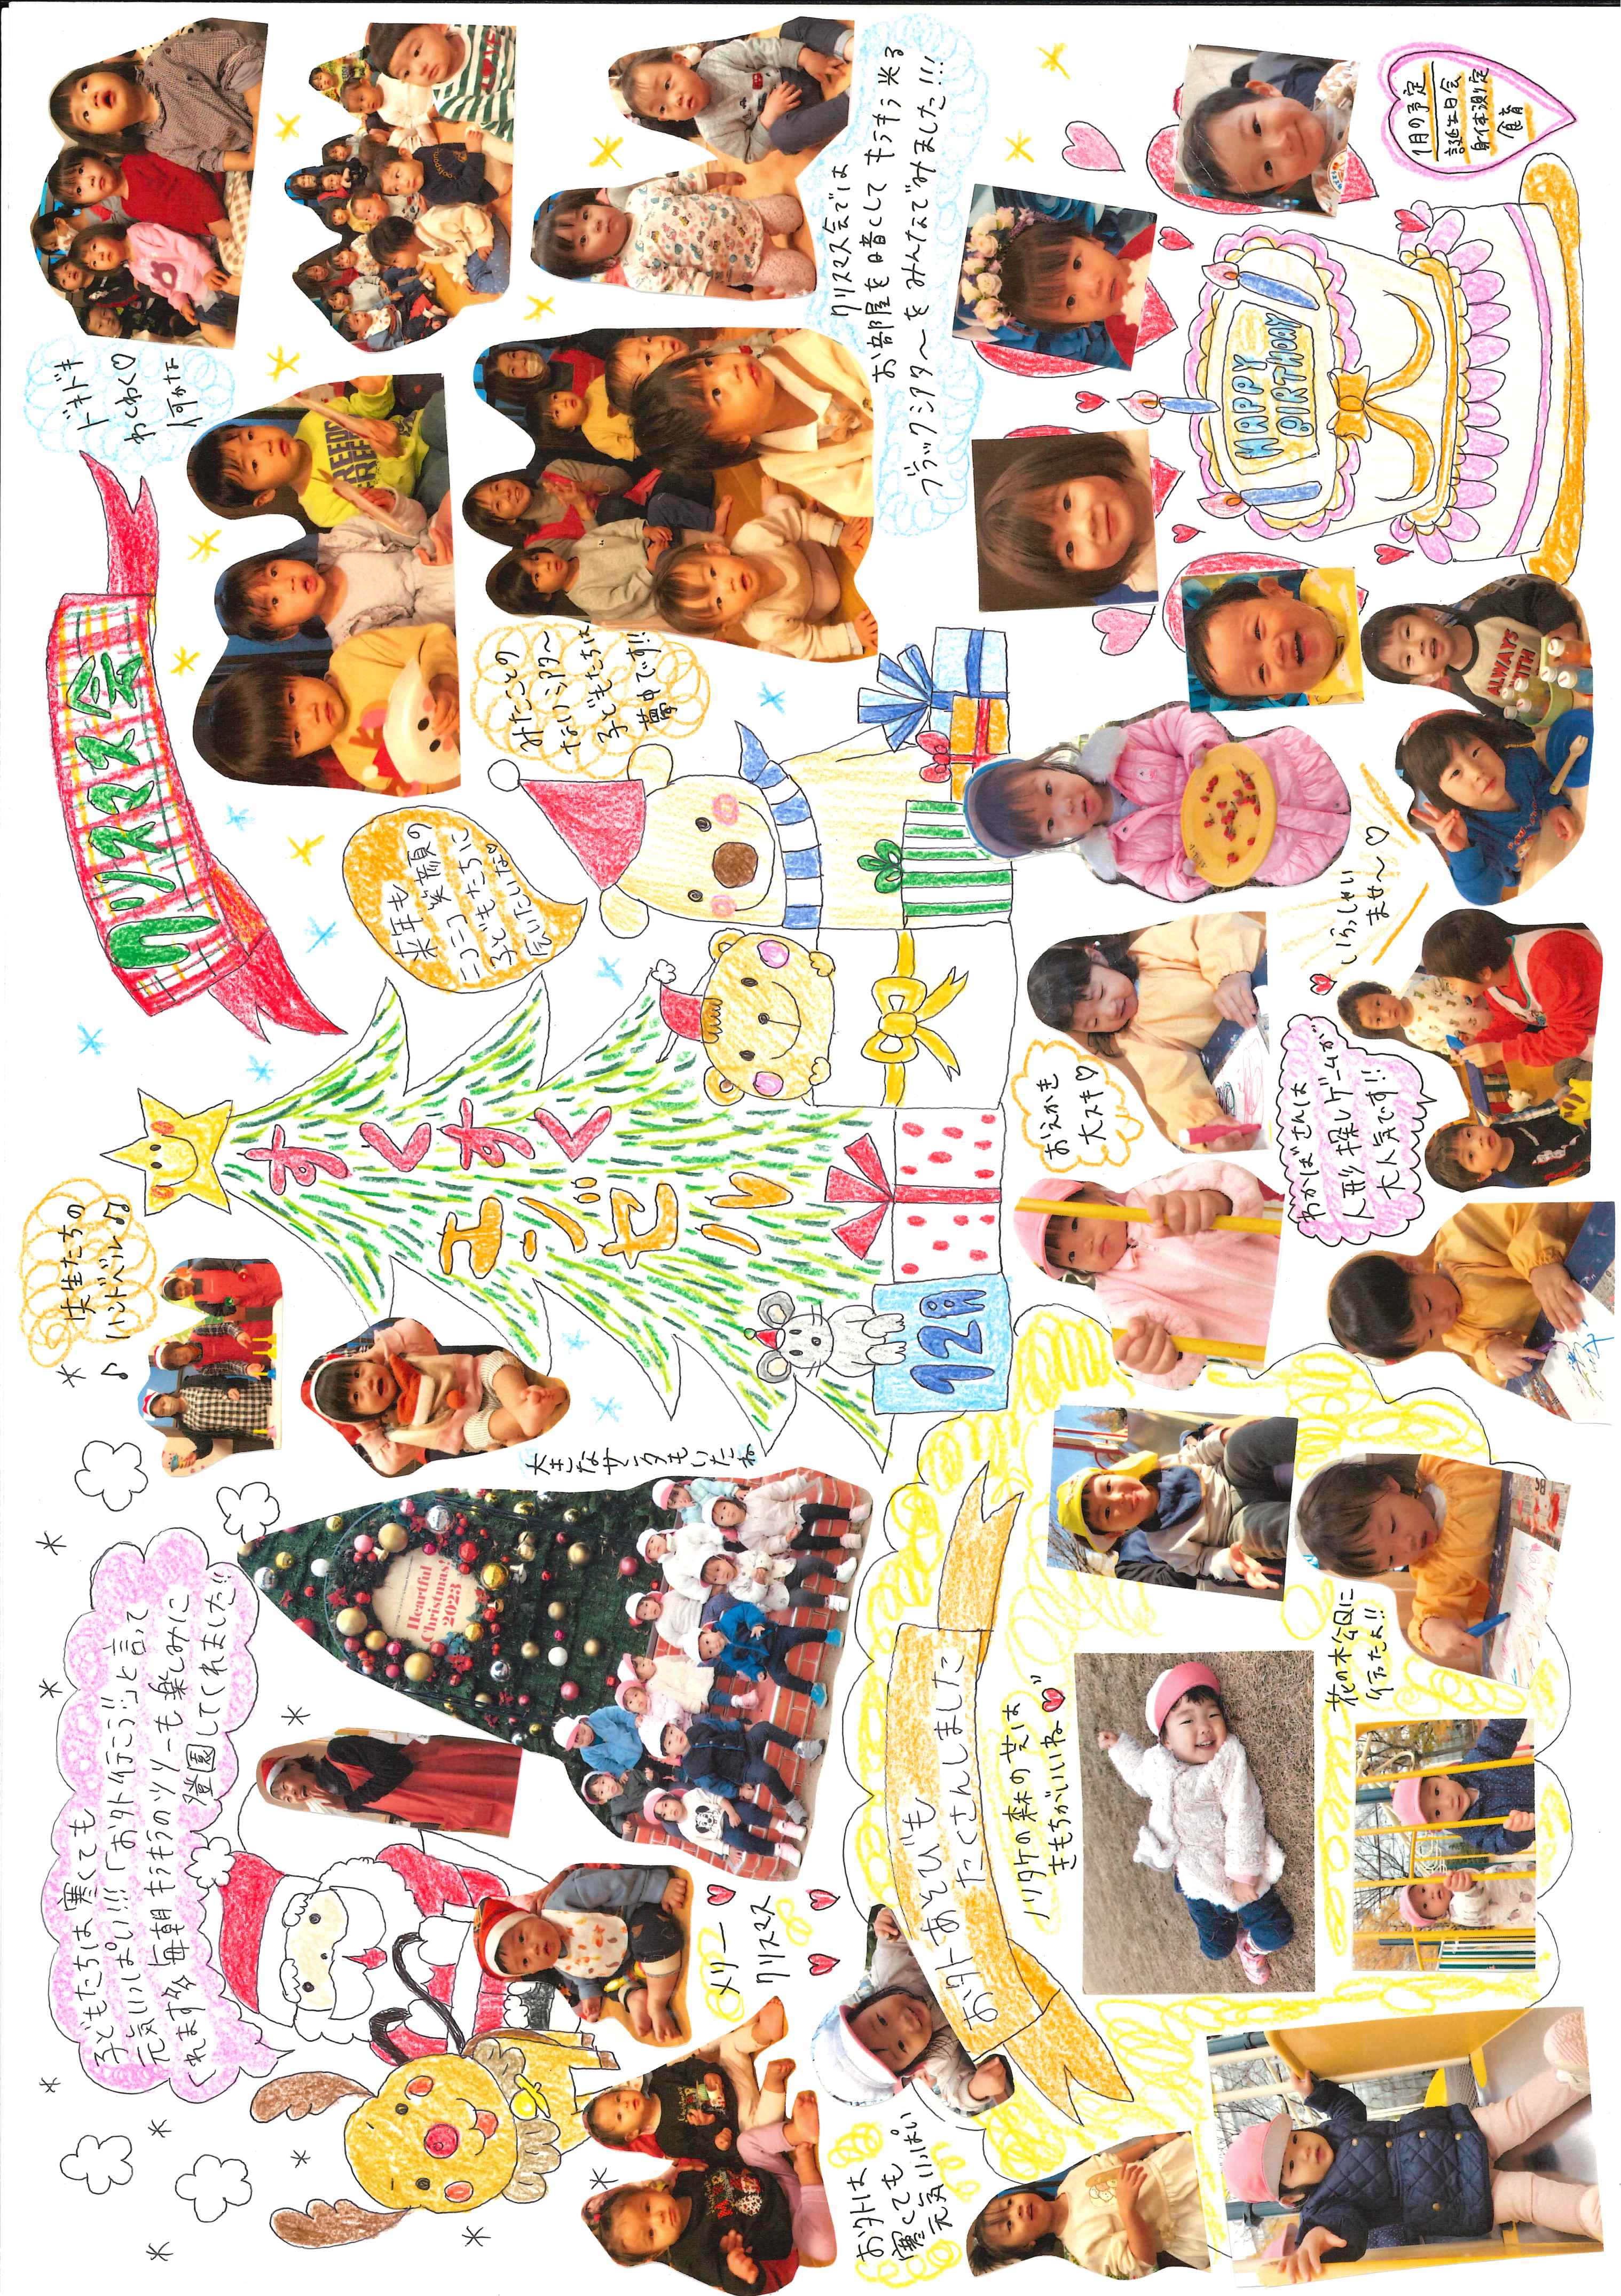 子どもたちは寒くても
元気いっぱい!!!「お外行こう!」と言って
くれます☆毎朝キラキラのツリーも楽しみに
登園してくれました!!
先生たちの
ハンドベル♪
クリスマス会
ドキドキ
わくわく♡
何かな
すくすく
エンゼル
12月
来年も
ニコニコ笑顔の
子どもたちに
会いたいな♡
みたことの
ないシアター
子どもたちは
夢中です!!
クリスマス会では
お部屋を暗くしてキラキラ光る
ブラックシアターをみんなでみました!!!
大きなサンタもいたね
Heartful
Christmas!
2023
メリー
クリスマス
お外は
寒くても
元気いっぱい
お外あそびも
たくさんしました
ノリタケの森の芝は
きもちがいいね♡
花の木公園に
行ったよ!!
おえかき
大スキ♡
わかばさんは
人形探しゲームが
大人気です!!
いらっしゃい
ませ〜♡
ALWAYS
WITH
HAPPY
BIRTHDAY
1月の予定
誕生日会
身体測定
食育